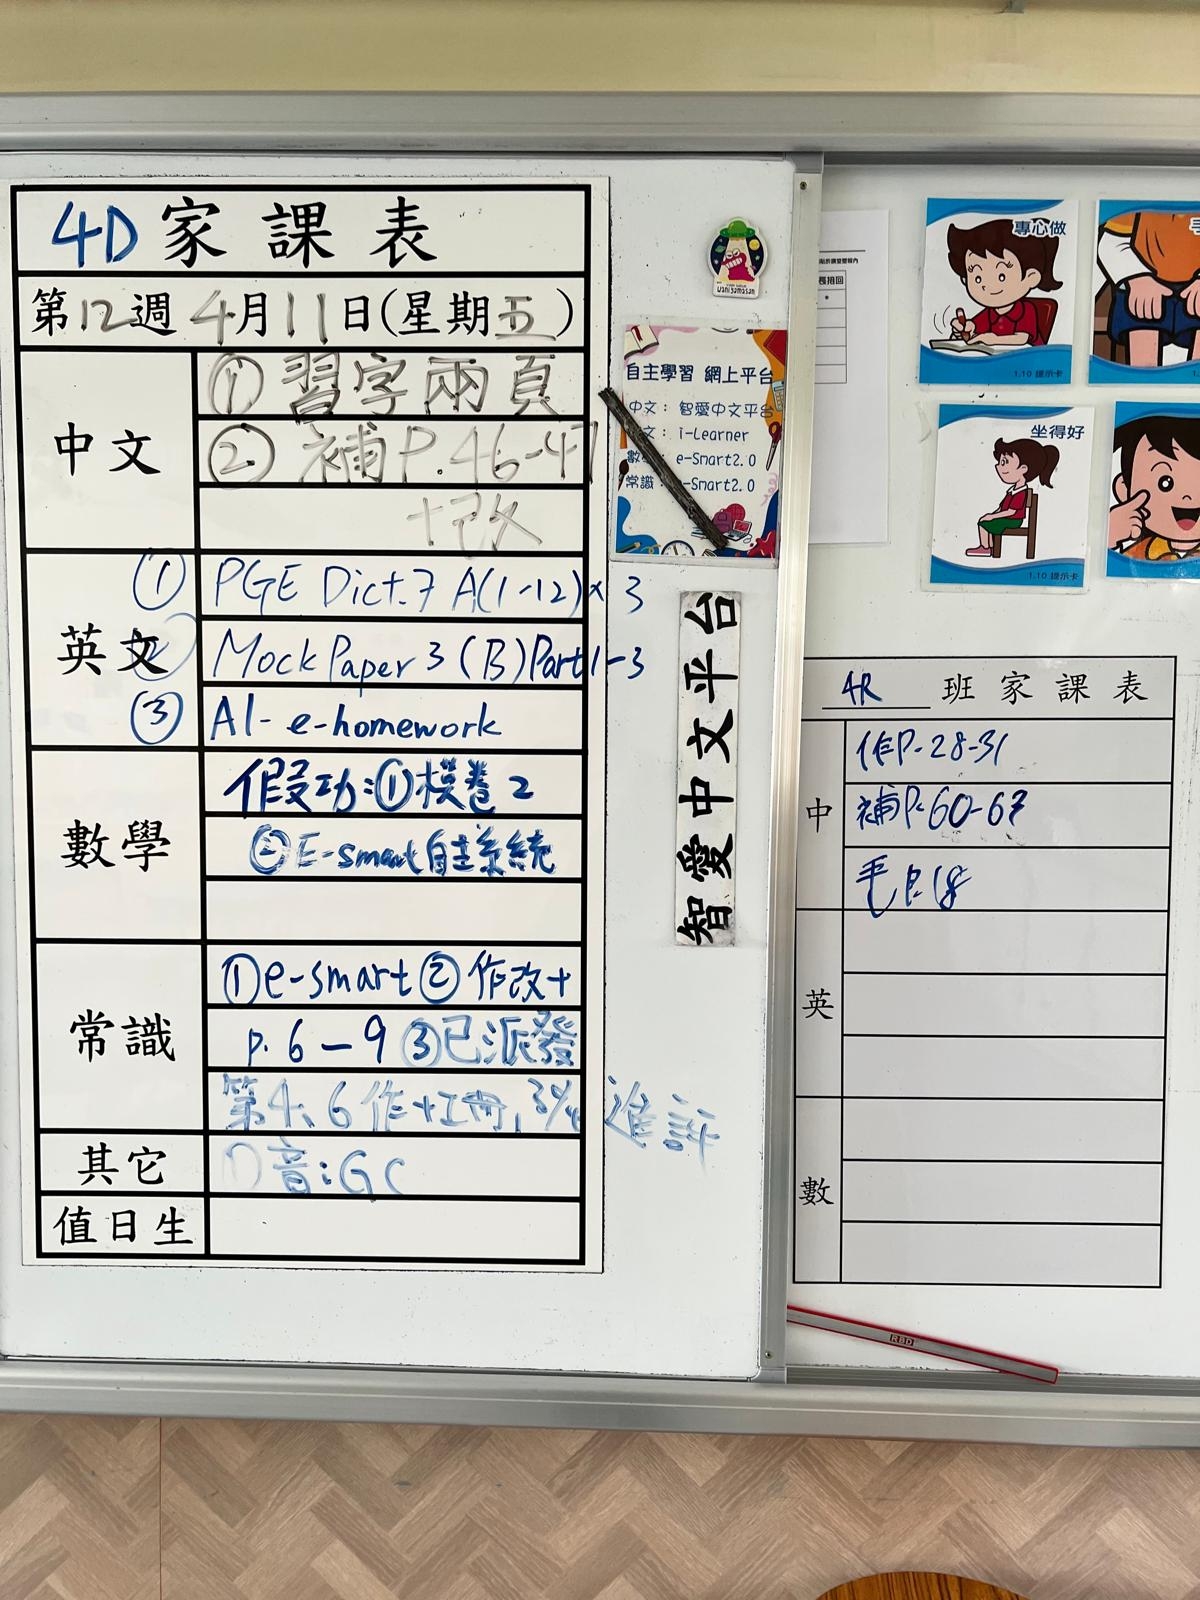 4D 家課表
第12週 4月11日(星期五)
中文
① 習字兩頁
② 補P.46-47
+改
英文
① PGE Dict.7 A(1-12)×3
② Mock Paper 3 (B) Part 1-3
③ AI- e-homework
數學
假功:①模卷2
②E-smart自主系統
常識
①e-smart ②作改+
p. 6-9 ③已派發
第4、6作+工冊,
進評
其它
音:GC
值日生
uaniyamasan
自主學習 網上平台
中文: 智愛中文平台
文: i-Learner
數 e-Smart2.0
常識: e-Smart2.0
智愛中文平台
專心做
1.10 提示卡
坐得好
1.10 提示卡
4R 班家課表
中
作P.28-31
補P.60-67
毛P.18
英
數